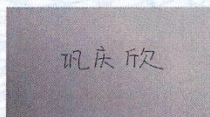 巩庆欣